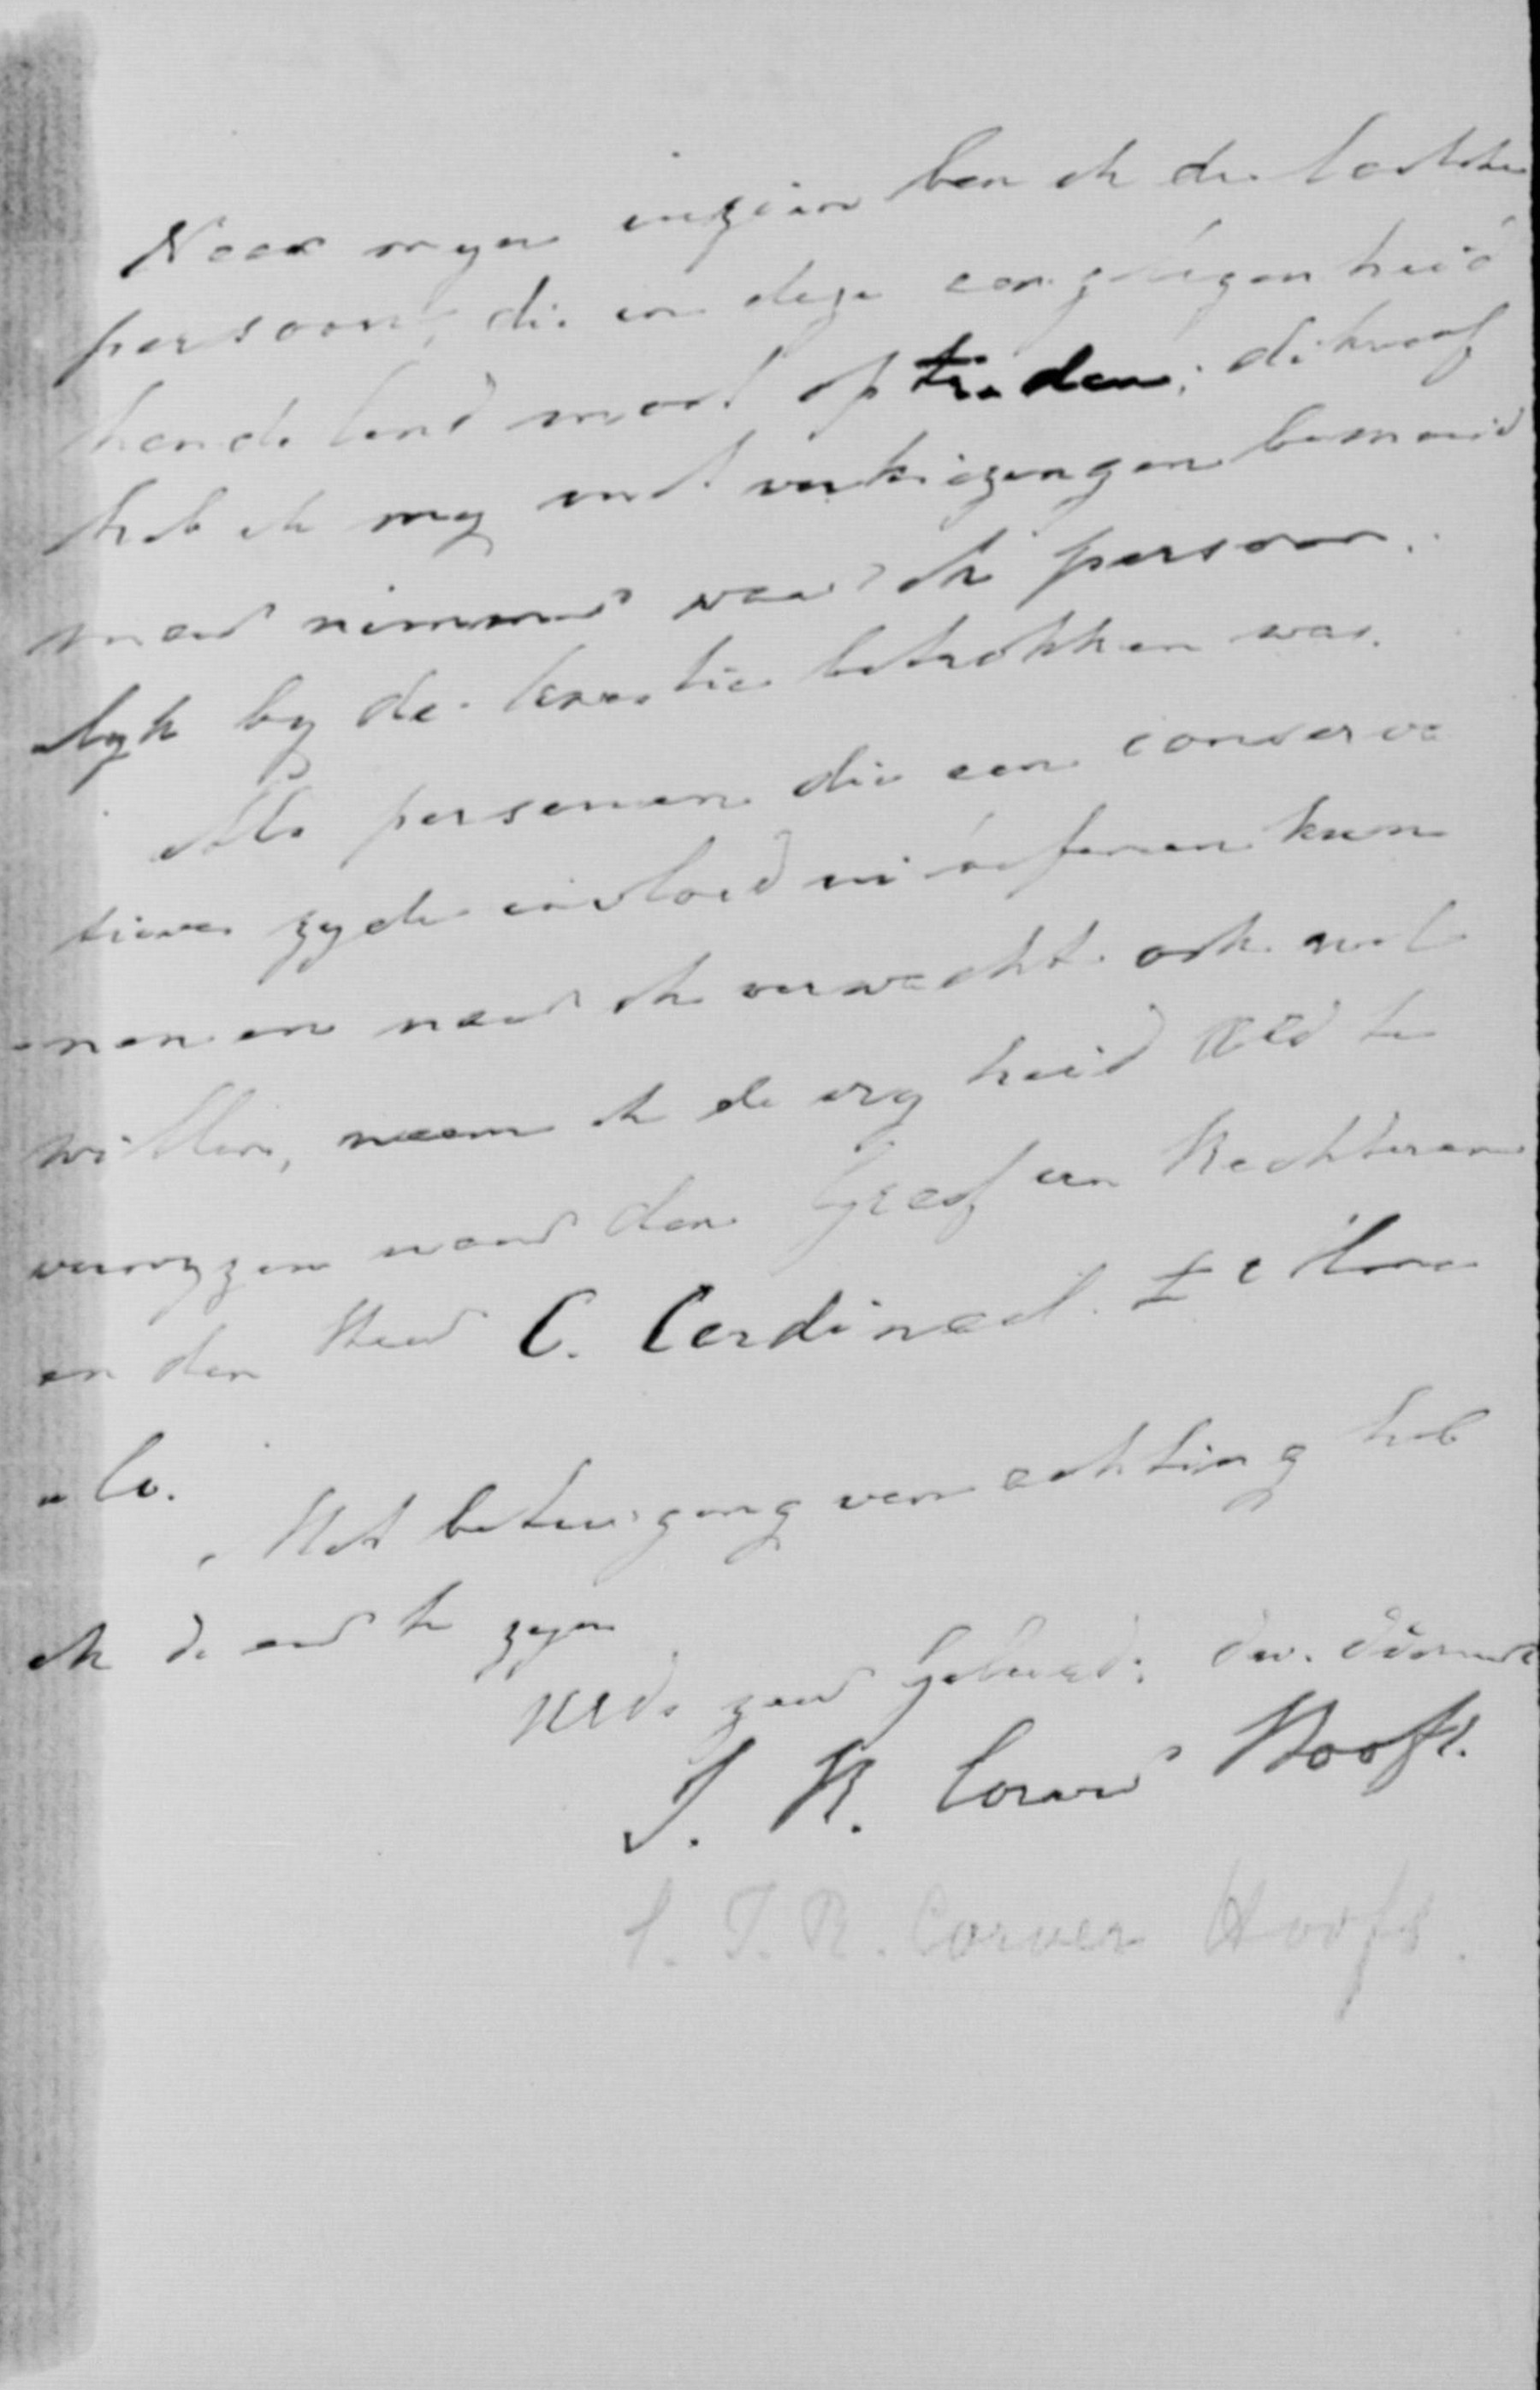 Naar myn inzien ben ik de laatste
persoon, die in deze aangelegenheid
handelend moet optreden; dikwerf
heb ik my met verkiezingen bemoeid
maar nimmer waar ik persoon
lyk by de kwestie betrokken was.
Als personen die een conserva
tieve zyde invloed uitoefenen kun
nen en naar ik verwacht ook wel
willen, neem ik de vryheid UEd te
verwyzen naar den Graaf van Rechteren
en den Heer C. Cardinaal
Met betuiging van achting heb
ik de eer te zyn
UEds zeer Geheel dw. dienaar
J. R. Corver Hooft.
J. R. Corver Hooft.